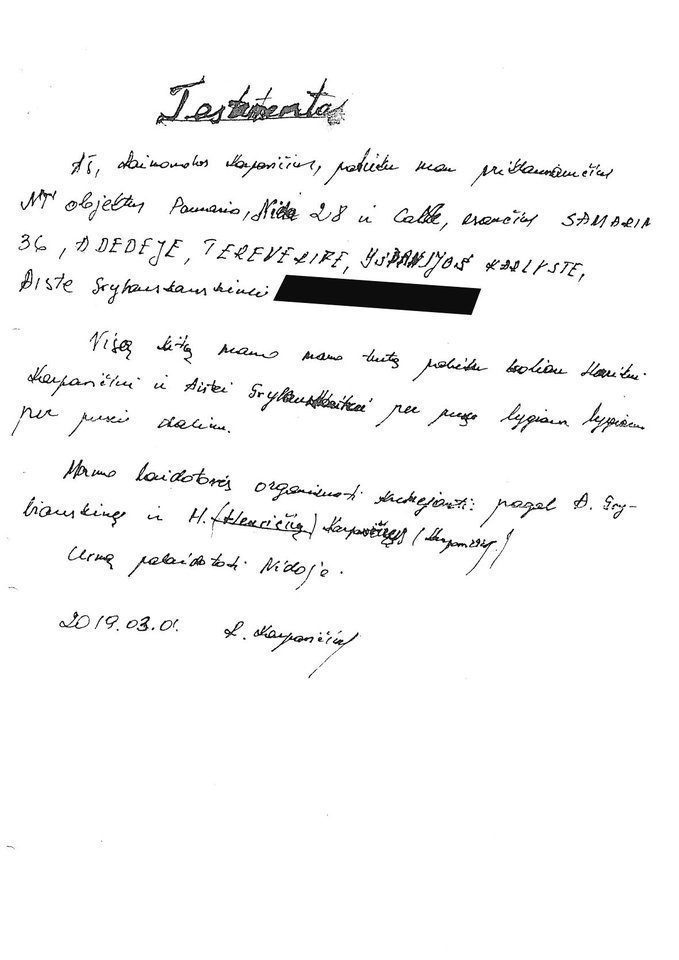 Testamentas
Aš, Raimondas Karpavičius, palieku man priklausančius
NT objektus Pamario, Nida 28 ir esančius SAMARIN
36, ADEDEJE, TEREVERIFE, YSPANIJOS KARLYSTE,
Aiste Grybauskauskienei
Visą kitą mano mano turtą palieku broliui Henrikui
Karpavičiui ir Aistei per pusę lygiom lygiom
per pusei dalim.
Mano laidotuves organizuoti pagal A. Gry-
bauskienę ir H. (Henričių) (Karpavičių.)
Urną palaidoti Nidoje.
2019.03.01. R. Karpavičius